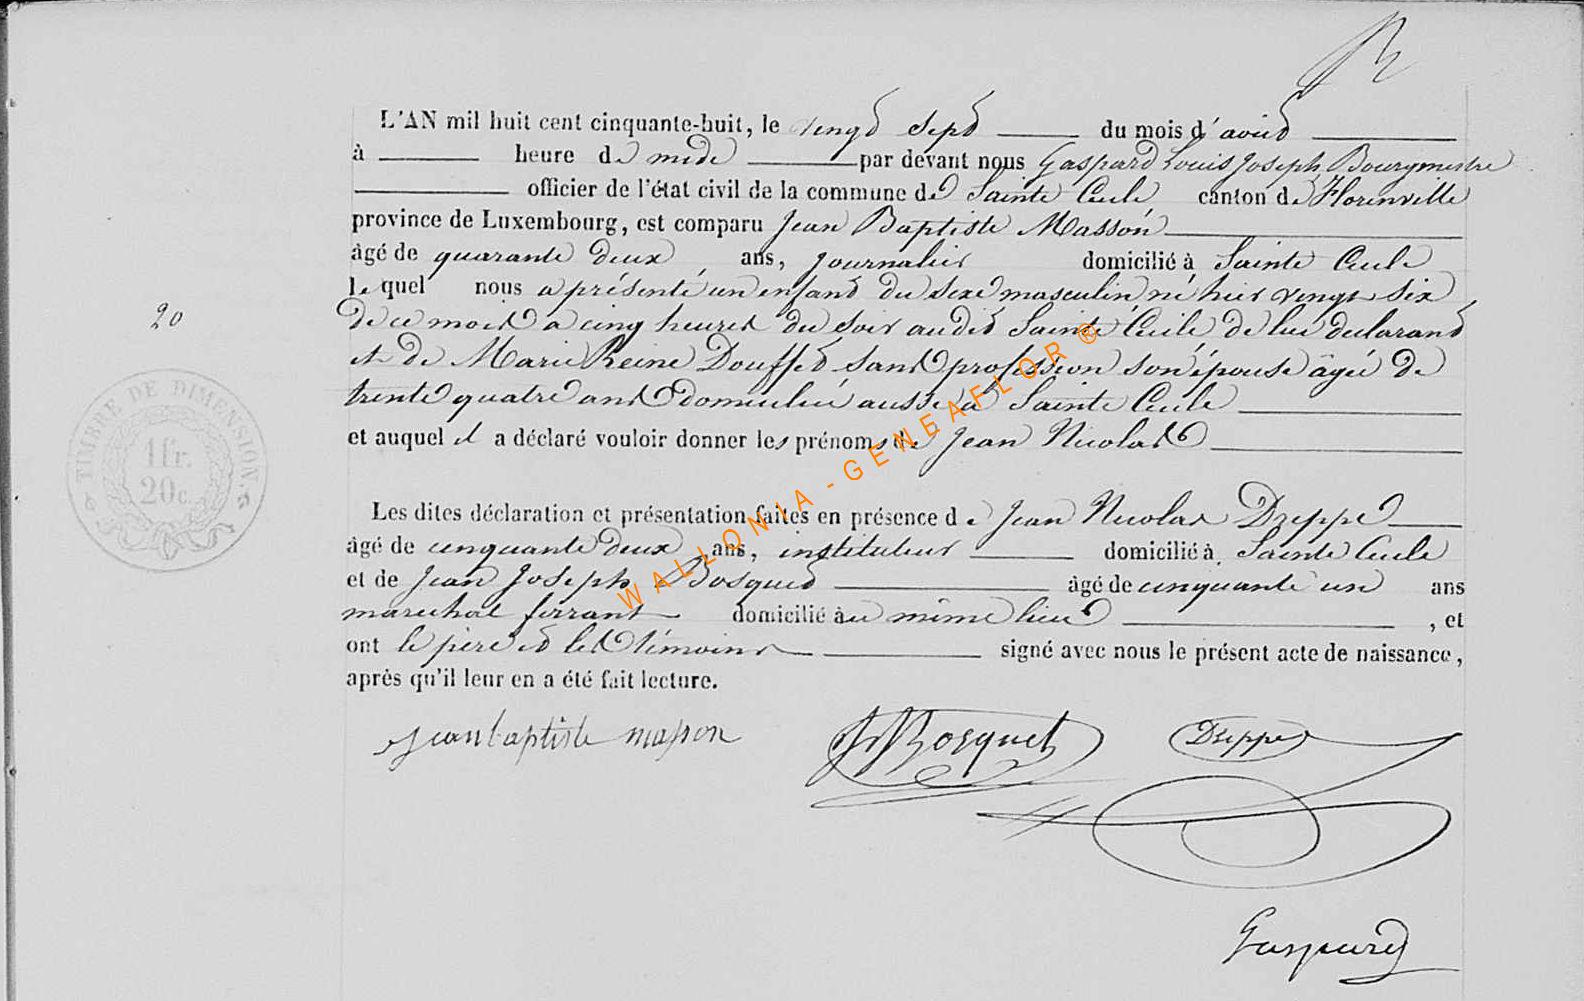 L'AN mil huit cent cinquante-huit, le vingt sept du mois d'août
à heure de midi par devant nous Gaspard Louis Joseph Bourgmestre
officier de l'état civil de la commune de Sainte Cecile canton de Florenville
province de Luxembourg, est comparu Jean Baptiste Masson
âgé de quarante deux ans, journalier domicilié à Sainte Cecile
le quel nous a présenté un enfant du sexe masculin né hier vingt six
20
de ce mois a cinq heures du soir au dit Sainte Cécile de lui déclarant
et de Marie Reine Douffet sans profession son épouse âgée de
trente quatre ans domiciliée aussi à Sainte Cecile
et auquel il a déclaré vouloir donner les prénoms de Jean Nicolas
TIMBRE DE DIMENSION.
1 fr.
20 c.
Les dites déclaration et présentation faites en présence de Jean Nicolas Dreppe
âgé de cinquante deux ans, instituteur domicilié à Sainte Cecile
et de Jean Joseph Bosquet âgé de cinquante un ans
marechal ferrant domicilié au même lieu , et
ont le père et les témoins signé avec nous le présent acte de naissance,
après qu'il leur en a été fait lecture.
Jean baptiste masson JJ Bosquet Dreppe
Gaspard
WALLONIA - GENEAFLOR ®